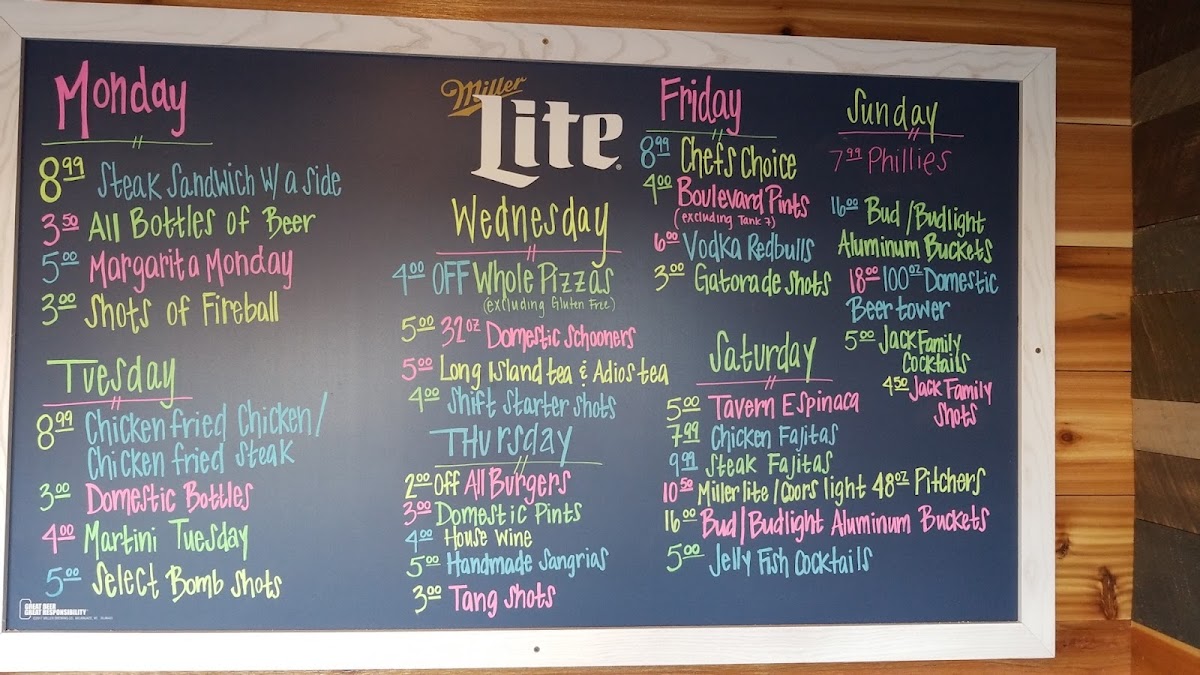 Monday
8.99 Steak Sandwich w/ a side
3.50 All Bottles of Beer
5.00 Margarita Monday
3.00 Shots of Fireball
Tuesday
8.99 Chicken fried Chicken/
Chicken fried Steak
3.00 Domestic Bottles
4.00 Martini Tuesday
5.00 Select Bomb Shots
GREAT BEER
GREAT RESPONSIBILITY
Miller
Lite
Wednesday
4.00 OFF Whole Pizzas
(excluding Gluten Free)
5.00 32oz Domestic Schooners
5.00 Long Island tea & Adios tea
4.00 Shift Starter Shots
Thursday
2.00 Off All Burgers
3.00 Domestic Pints
4.00 House Wine
5.00 Handmade Sangrias
3.00 Tang Shots
Friday
8.99 Chefs Choice
4.00 Boulevard Pints
(excluding Tank 7)
6.00 Vodka Redbulls
3.00 Gatorade Shots
Saturday
5.00 Tavern Espinaca
7.99 Chicken Fajitas
9.99 Steak Fajitas
10.50 Miller lite/Coors light 48oz Pitchers
16.00 Bud/Budlight Aluminum Buckets
5.00 Jelly Fish Cocktails
Sunday
7.99 Phillies
16.00 Bud/Budlight
Aluminum Buckets
18.00 100oz Domestic
Beer tower
5.00 Jack Family
Cocktails
4.50 Jack Family
Shots